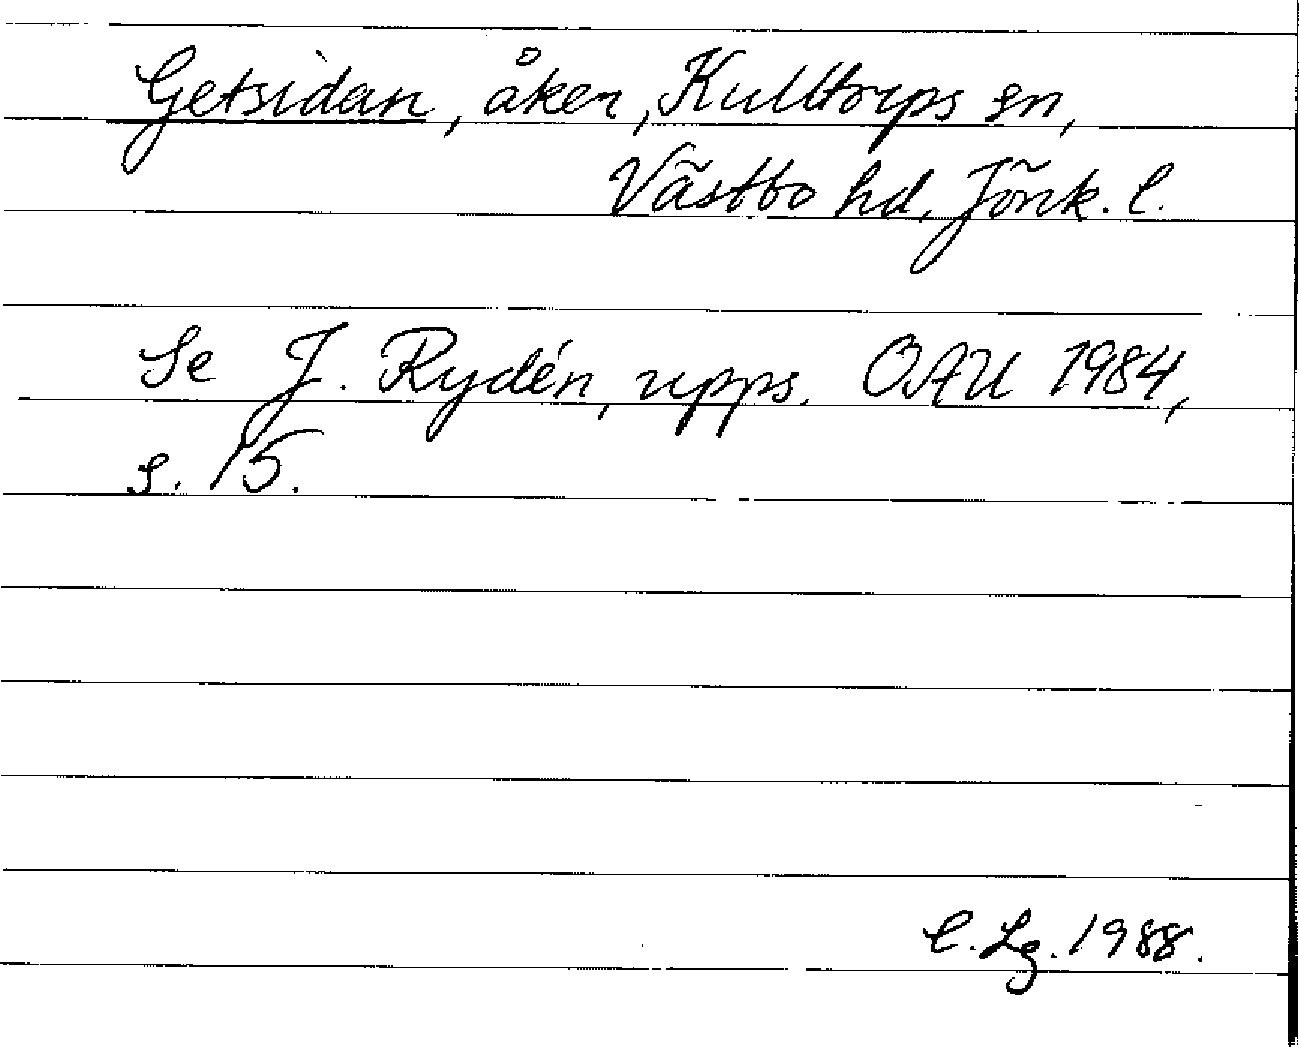 Getsidan, åker, Kulltorps sn,
Västbo hd, Jönk. l.
Se J. Rydén, upps. OAU 1984,
s. 15.
C. Lg. 1988.